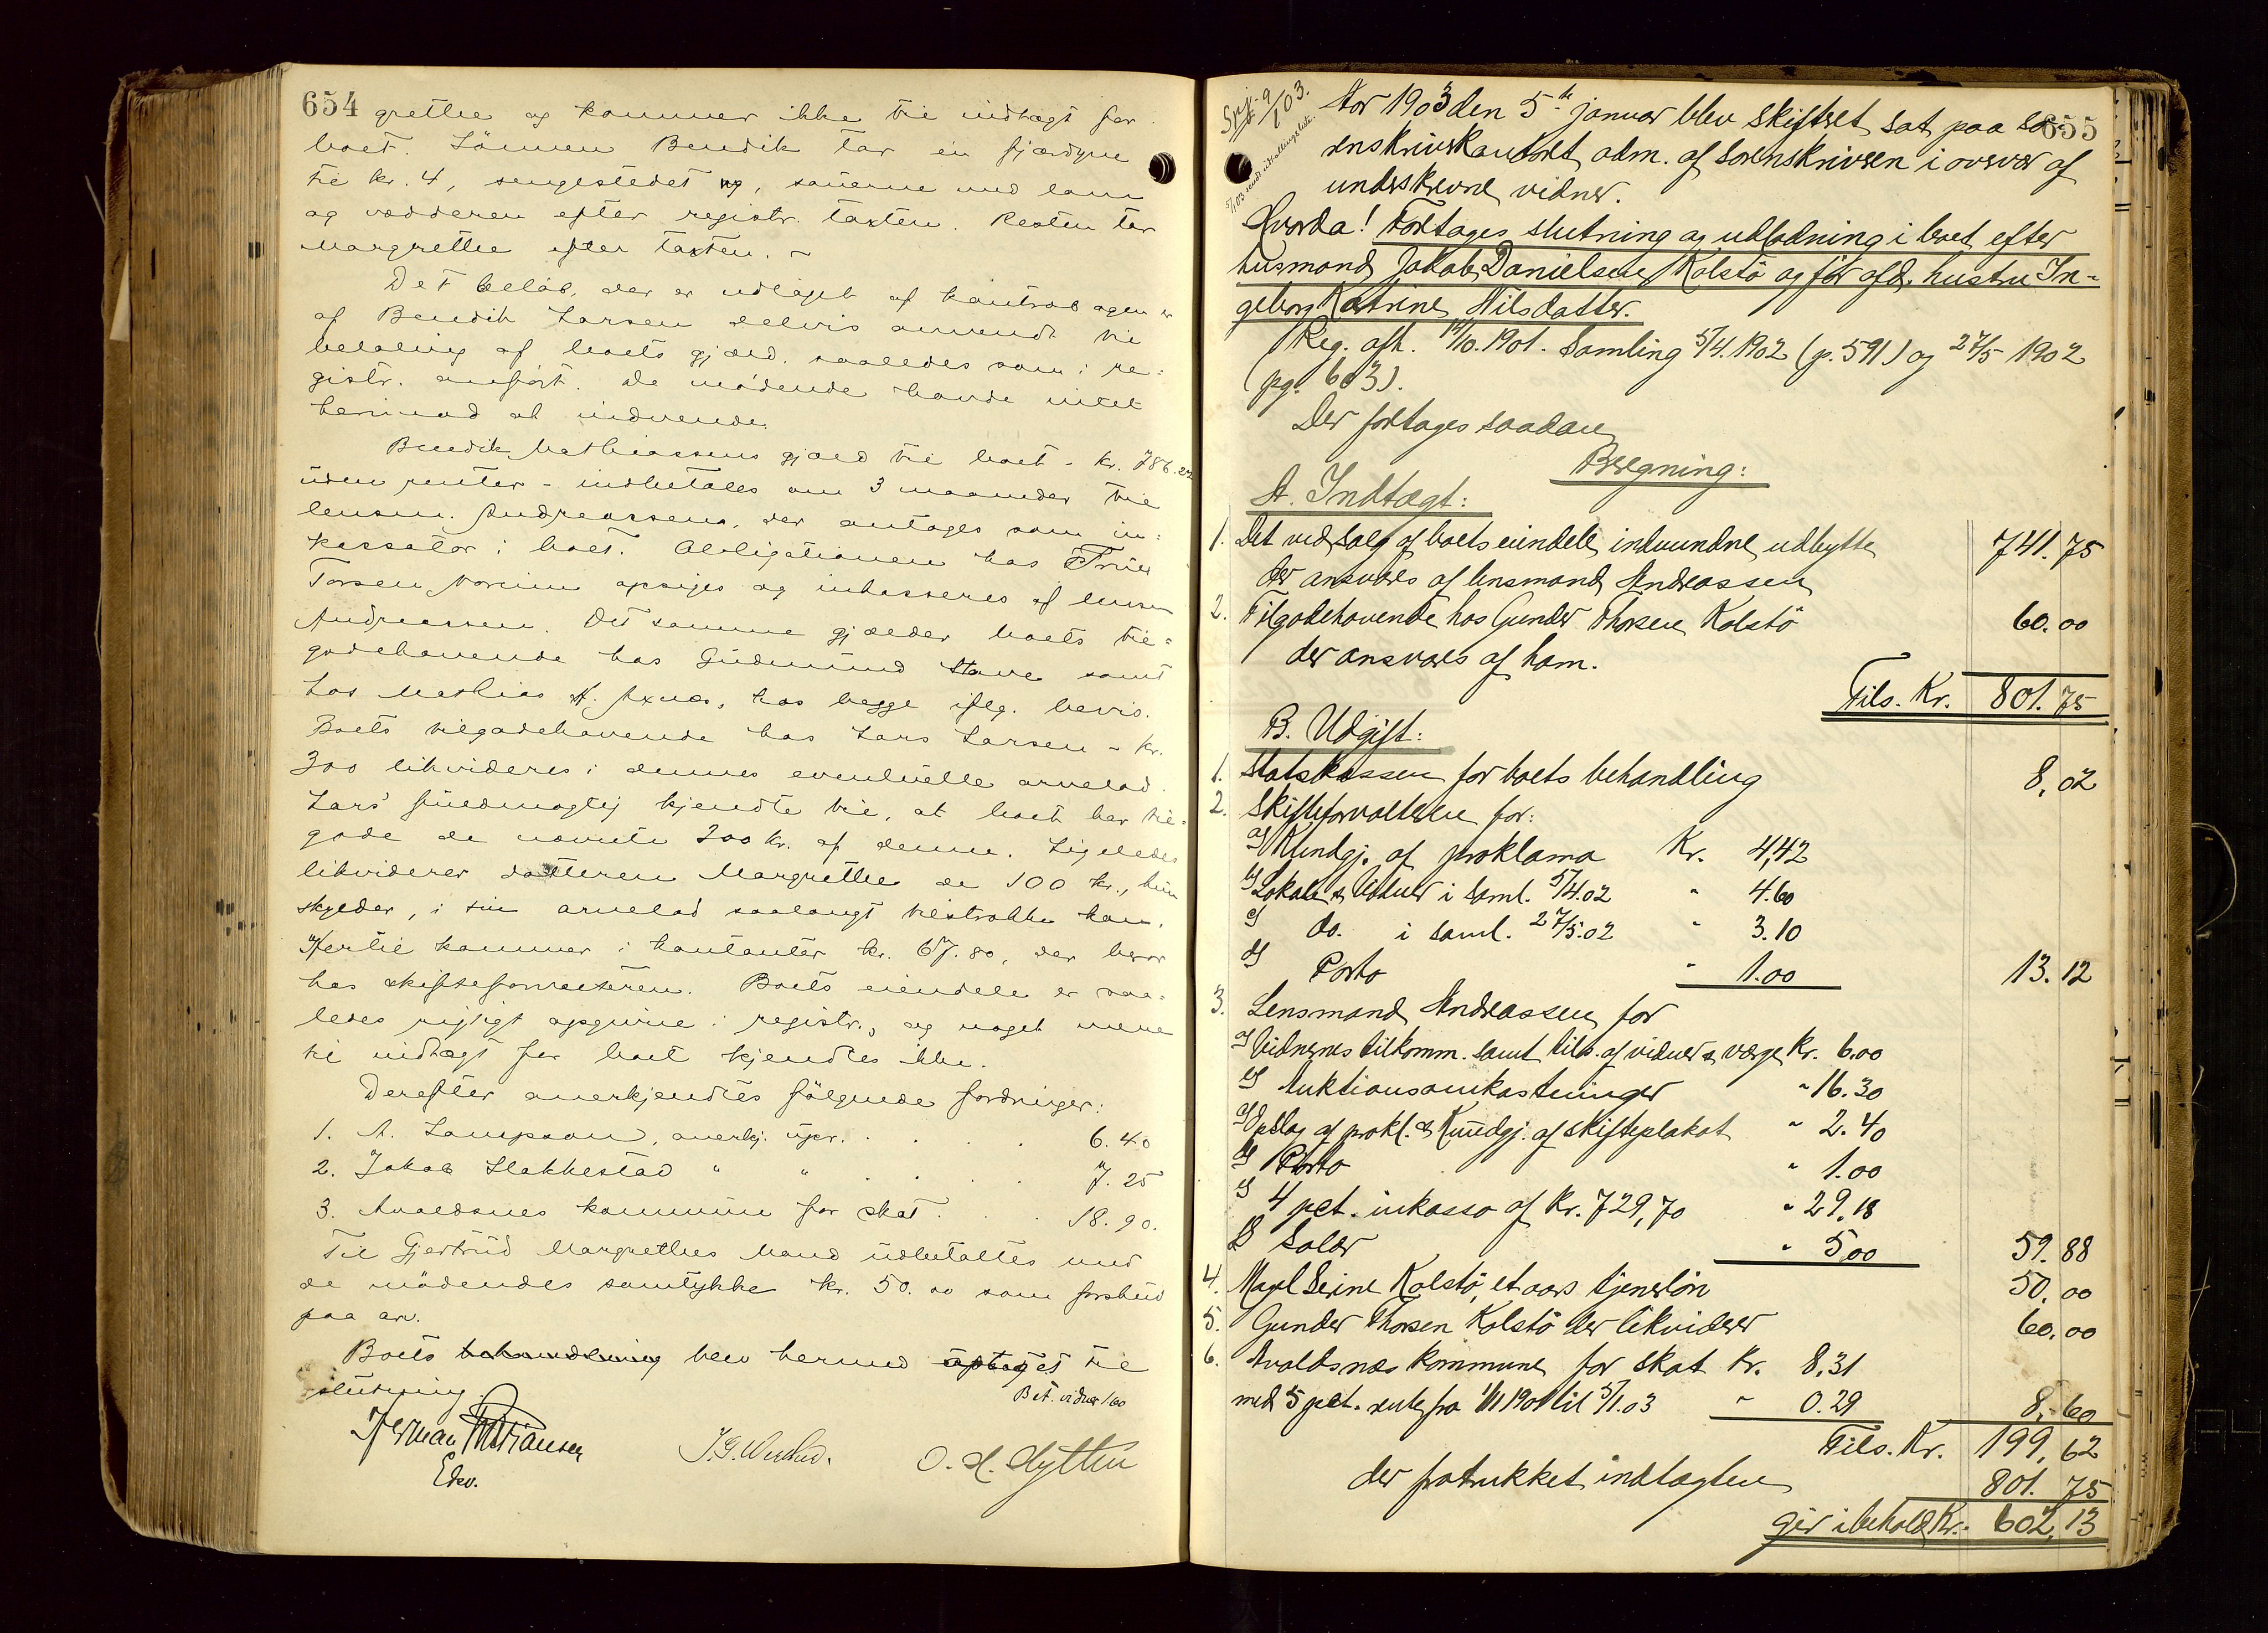 654
grethe og kommer ikke til indtægt for
boet. Sönnen Bendik tar en fjærdyne
til kr. 4, sengestedet og, sauerne med lam
og vædderen efter registr. taxten. Resten tar
Margrethe efter taxten. -
Det belöb, der er udlaget af kontrol ogen er
af Bendik Larsen delvis anvendt til
betaling af boets gjæld, saaledes som i re-
gistr. anfört. De mödende havde intet
herimod at indvende.
Bendik Mathiassens gjæld til boet - kr. 786.22
uden renter - indbetales om 3 maaneder til
lensm. Andreassen, der antages som in-
kassator i boet. Obligationen hos Truls
Torsen Noreim opsiges og inkasseres af lensm
Andreassen. Det samme gjælder boets til-
godehavende hos Gudmund Stave samt
hos Mathias A. Axnes, hos begge iflg. bevis.
Boets tilgodehavende hos Lars Larsen - kr.
300 likvideres i dennes eventuelle arvelod.
Lars' fuldmægtig kjendte til, at boet har til-
gode de nævnte 300 kr. af denne. Ligeledes
likviderer datteren Margrethe de 100 kr., hun
skylder, i sin arvelod saalangt tilstrække kan.
Hertil kommer i kontanter kr. 67.80, der beror
hos skifteforvalteren. Boets eiendele er saa-
ledes rigtigt opgivne i registr., og noget mere
til indtægt for boet kjendtes ikke.
Derefter anerkjendtes fölgende fordringer:
1. A. Lampson, anerkj. upr. . . . . 6.40
2. Jakob Slakkestad " " . . . . 7.25
3. Avaldsnes kommune for skat . . . 18.90.
Til Gjertrud Margrethes Mand udbetaltes med
de mödendes samtykke kr. 50.00 som forskud
paa arv.
Boets behandling blev hermed optaget til
slutning.
Bet. vidner 1.60
Edv.
655
Aar 1903 den 5te januar blev skifteret sat paa so-
renskriverkontoret, adm. af sorenskriveren i overvær af
underskrevne vidner.
Hvorda! Foretages slutning og udlodning i boet efter
husmand Jakob Danielsen Kolstö og för afd. hustru In-
geborg Katrine Nilsdatter.
Reg. afh. 14/10.1901. Samling 5/4.1902 (p. 591) og 27/5 1902
(pg. 603).
Der foretages saadan
Beregning:
A. Indtægt:
1. Det ved salg af boets eiendele indvundne udbytte 741.75
der ansvares af lensmand Andreassen
2. Tilgodehavende hos Gunder Thorsen Kolstö 60.00
der ansvares af ham.
Tils. Kr. 801.75
B. Udgift:
1. Statskassen for boets behandling 8,02
2. Skifteforvalteren for:
a) Kundgj. af proklama Kr. 4,42
b) Lokale & vidner i saml. 5/4.02 " 4.60
c) do. i saml. 27/5.02 " 3.10
d) Porto " 1.00 13.12
3. Lensmand Andreassen for
a) Vidnernes tilkomm. samt tils. af vidner & værge Kr. 6.00
b) Auktionsomkostninger " 16.30
c) Opslag af prokl. & Kundgj. af skifteplakat " 2.40
d) Porto " 1.00
e) 4 pct. inkasso af Kr. 729,70 " 29,18
f) Salær " 5,00 59.88
4. Magl Serine Kolstö, et aars tjenerlön 50,00
5. Gunder Thorsen Kolstö der likviderer 60,00
6. Avaldsnes kommune for skat Kr. 8,31
med 5 pct. rente fra 1/11 1901 til 5/1.03 " 0.29 8,60
Tils. Kr. 199,62
der fratrukket indtægten 801.75
gir i behold Kr. 602,13